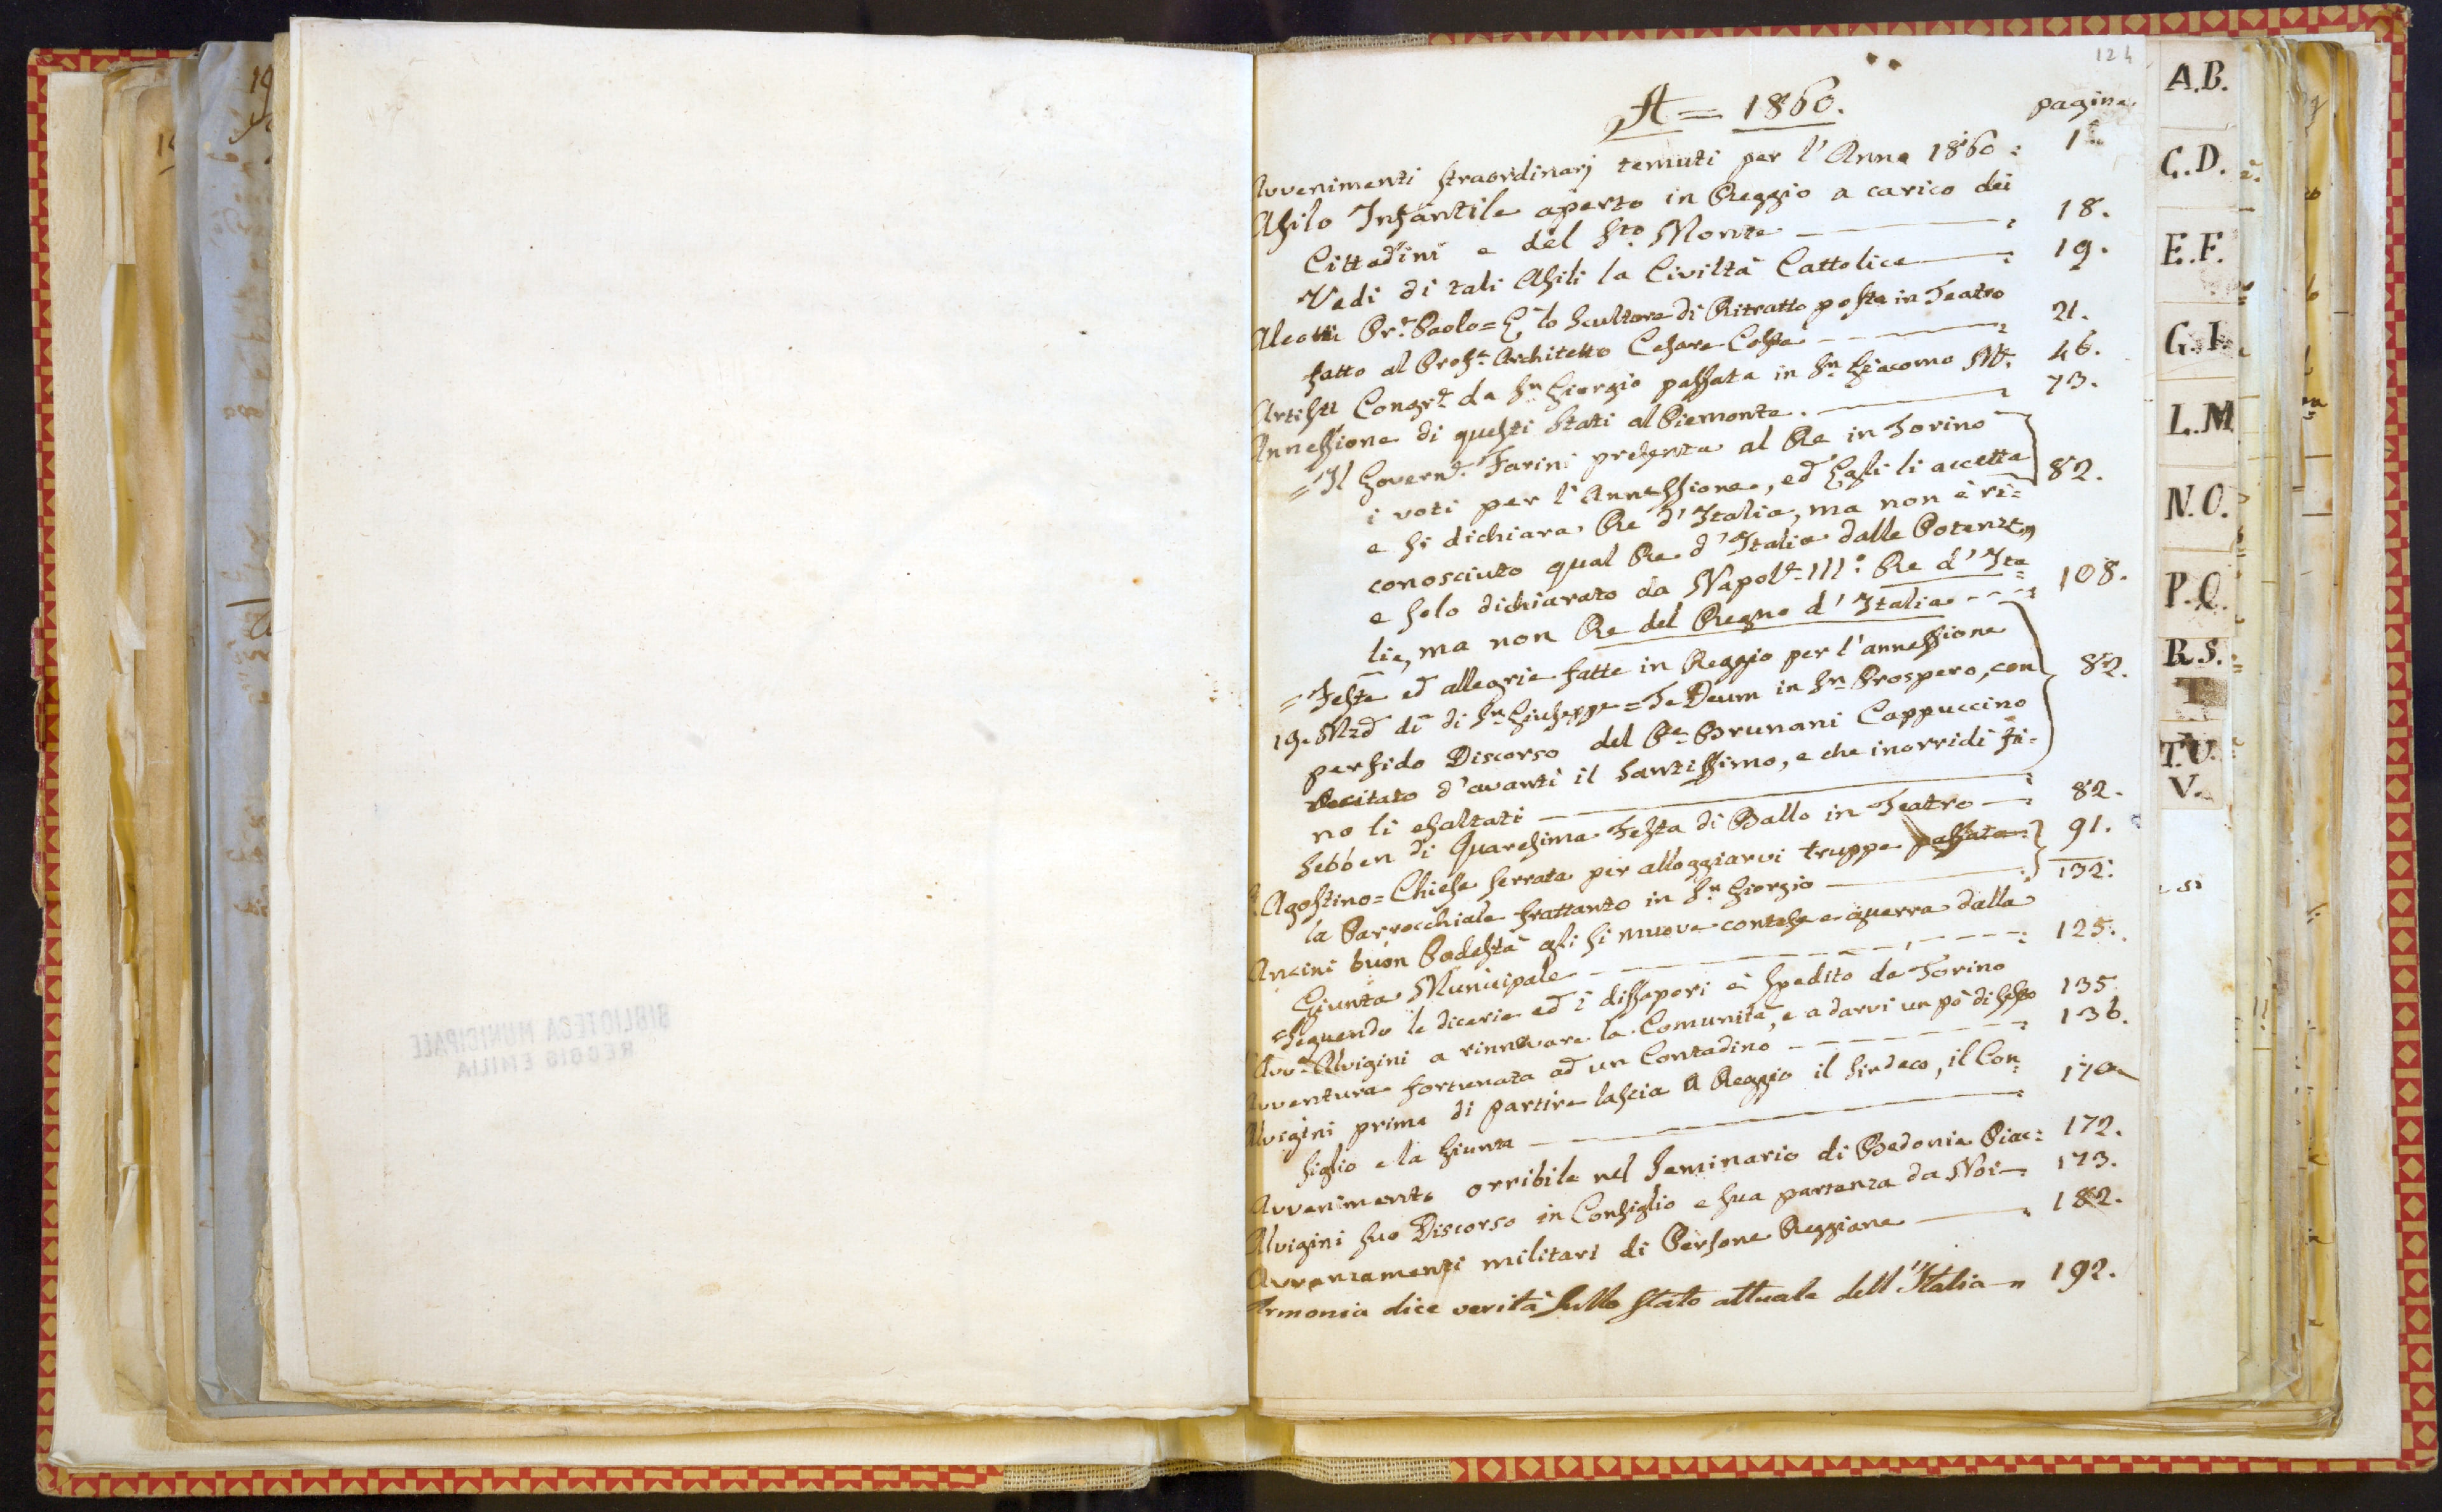 124
A = 1860.
pagine.
Avvenimenti straordinarj temuti per l'Anno 1860 : 1.
Asilo Infantile aperto in Reggio a carico dei
Cittadini e del Sto Monte : 18.
Vedi di tali Asili la Civiltà Cattolica : 19.
Aleotti Pr.e Paolo = È lo Scultore di Ritratto posto in Teatro
fatto al Profr. Architetto Cesare Costa : 21.
Artisti Congr.e da Sn Giorgio passata in Sn Giacomo M. 46.
Annessione di questi Stati al Piemonte. : 73.
= Il Govern.e Farini presenta al Re in Torino
i voti per l'Annessione, ed Egli li accetta 82.
e si dichiara Re d'Italia, ma non è ri=
conosciuto qual Re d'Italia dalle Potenze,
e solo dichiarato da Napol.e III.o Re d'Ita=
lia, ma non Re del Regno d'Italia : 108.
= Feste ed allegrie fatte in Reggio per l'annessione
19. Mzo dì di Sn Giuseppe = Te Deum in Sn Prospero, con 82.
perfido Discorso del Pe Brunani Cappuccino
recitato d'avanti il Santissimo, e che inorridì fi=
no li esaltati :
Sebben di Quaresima Festa di Ballo in Teatro : 82.
S. Agostino = Chiesa serrata per alloggiarvi truppe passata 91.
la Parrocchiale frattanto in Sn Giorgio : 132.
Ancini buon Podestà gli si muove contesa e guerra dalla
Giunta Municipale : 125.
= Seguendo le dicerie ed i dissapori è spedito da Torino
l'Avv.o Alvigini a rinnovare la Comunità, e a darvi un pò di sesto 135.
Avventura fortunata ad un Contadino : 136.
Alvigini prima di partire lascia a Reggio il Sindaco, il Con=
siglio e la Giunta : 170
Avvenimento orribile nel Seminario di Bedonia Piac: 172.
Alvigini suo Discorso in Consiglio e sua partenza da Noi : 173.
Avvanzamenti militari di Persone Reggiane : 182.
Armonia dice verità sullo stato attuale dell'Italia " 192.
A.B.
C.D.
E.F.
G.I.
L.M
N.O.
P.Q.
R.S.
T
T.U.
V.
BIBLIOTECA MUNICIPALE
REGGIO EMILIA